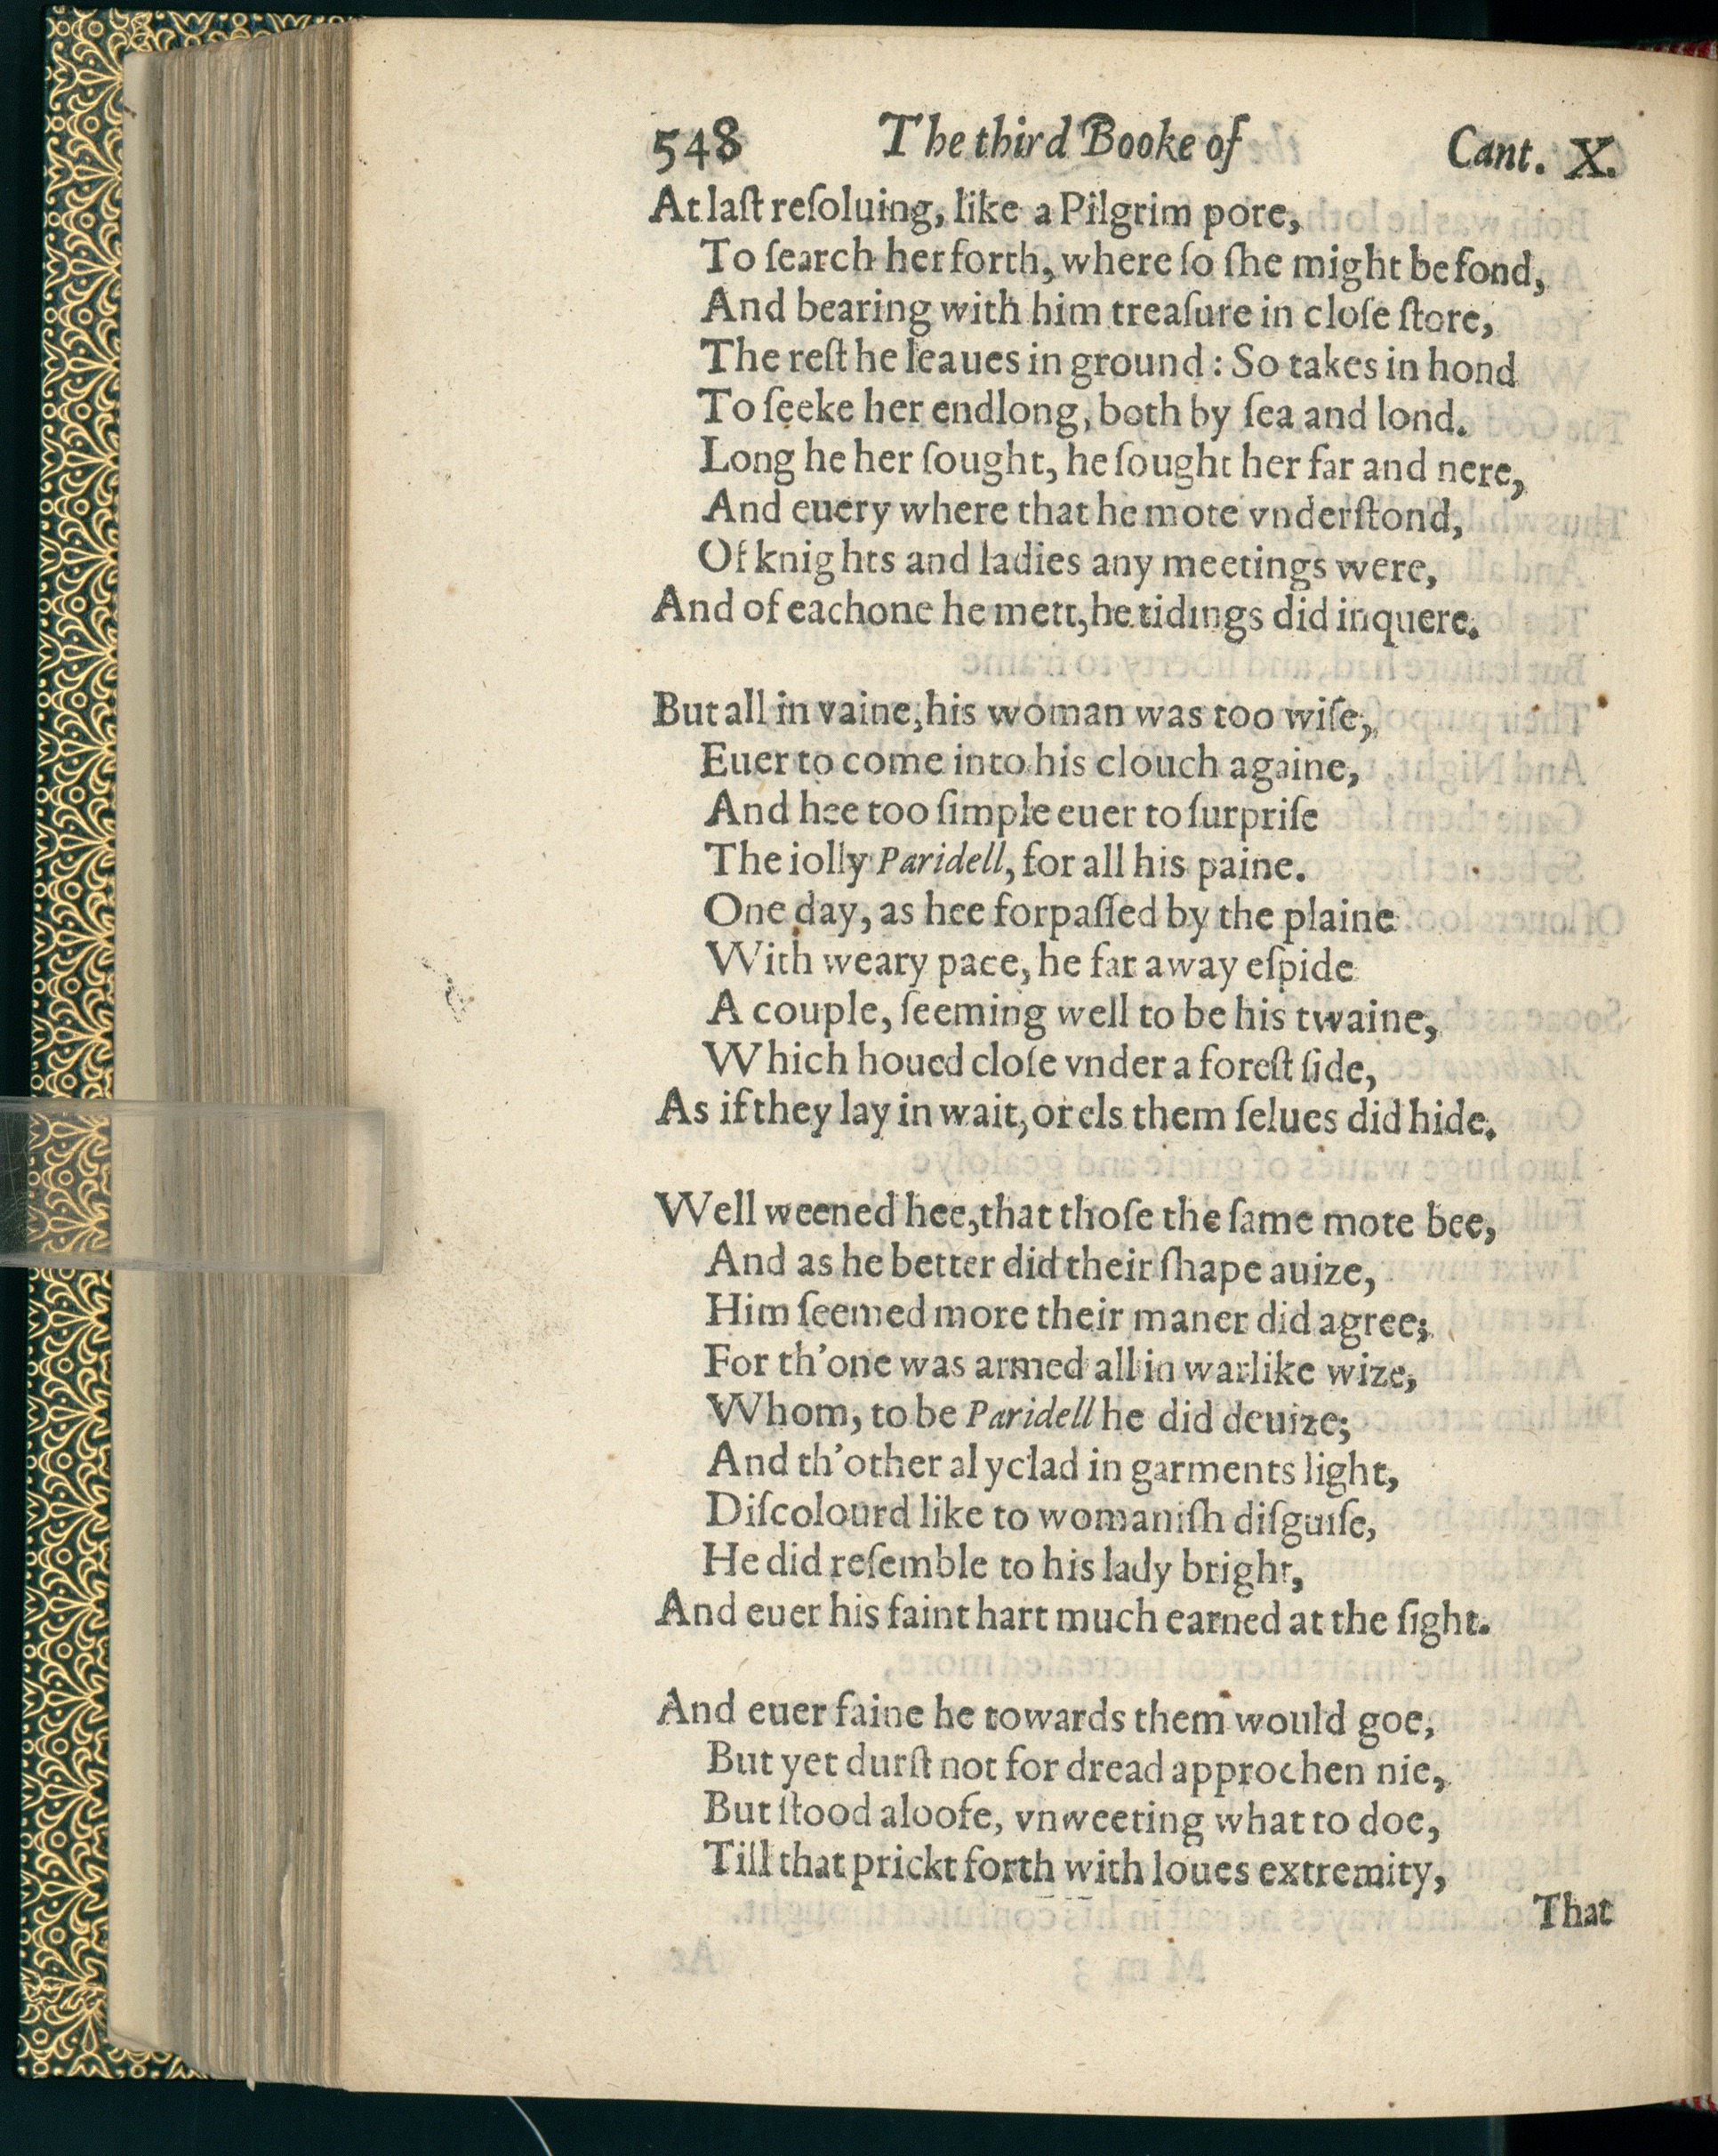 548 The third Booke of Cant. X.
At laſt reſoluing, like a Pilgrim pore,
To ſearch her forth, where ſo ſhe might be fond,
And bearing with him treaſure in cloſe ſtore,
The reſt he leaues in ground: So takes in hond
To ſeeke her endlong, both by ſea and lond.
Long he her ſought, he ſought her far and nere,
And euery where that he mote vnderſtond,
Of knights and ladies any meetings were,
And of eachone he mett, he tidings did inquere.
But all in vaine, his woman was too wiſe,
Euer to come into his clouch againe,
And hee too ſimple euer to ſurpriſe
The iolly Paridell, for all his paine.
One day, as hee forpaſſed by the plaine
With weary pace, he far away eſpide
A couple, ſeeming well to be his twaine,
Which houed cloſe vnder a foreſt ſide,
As if they lay in wait, or els them ſelues did hide.
Well weened hee, that thoſe the ſame mote bee,
And as he better did their ſhape auize,
Him ſeemed more their maner did agree;
For th'one was armed all in warlike wize,
Whom, to be Paridell he did deuize;
And th'other al yclad in garments light,
Diſcolourd like to womaniſh diſguiſe,
He did reſemble to his lady bright,
And euer his faint hart much earned at the ſight.
And euer faine he towards them would goe,
But yet durſt not for dread approchen nie,
But ſtood aloofe, vnweeting what to doe,
Till that prickt forth with loues extremity,
That